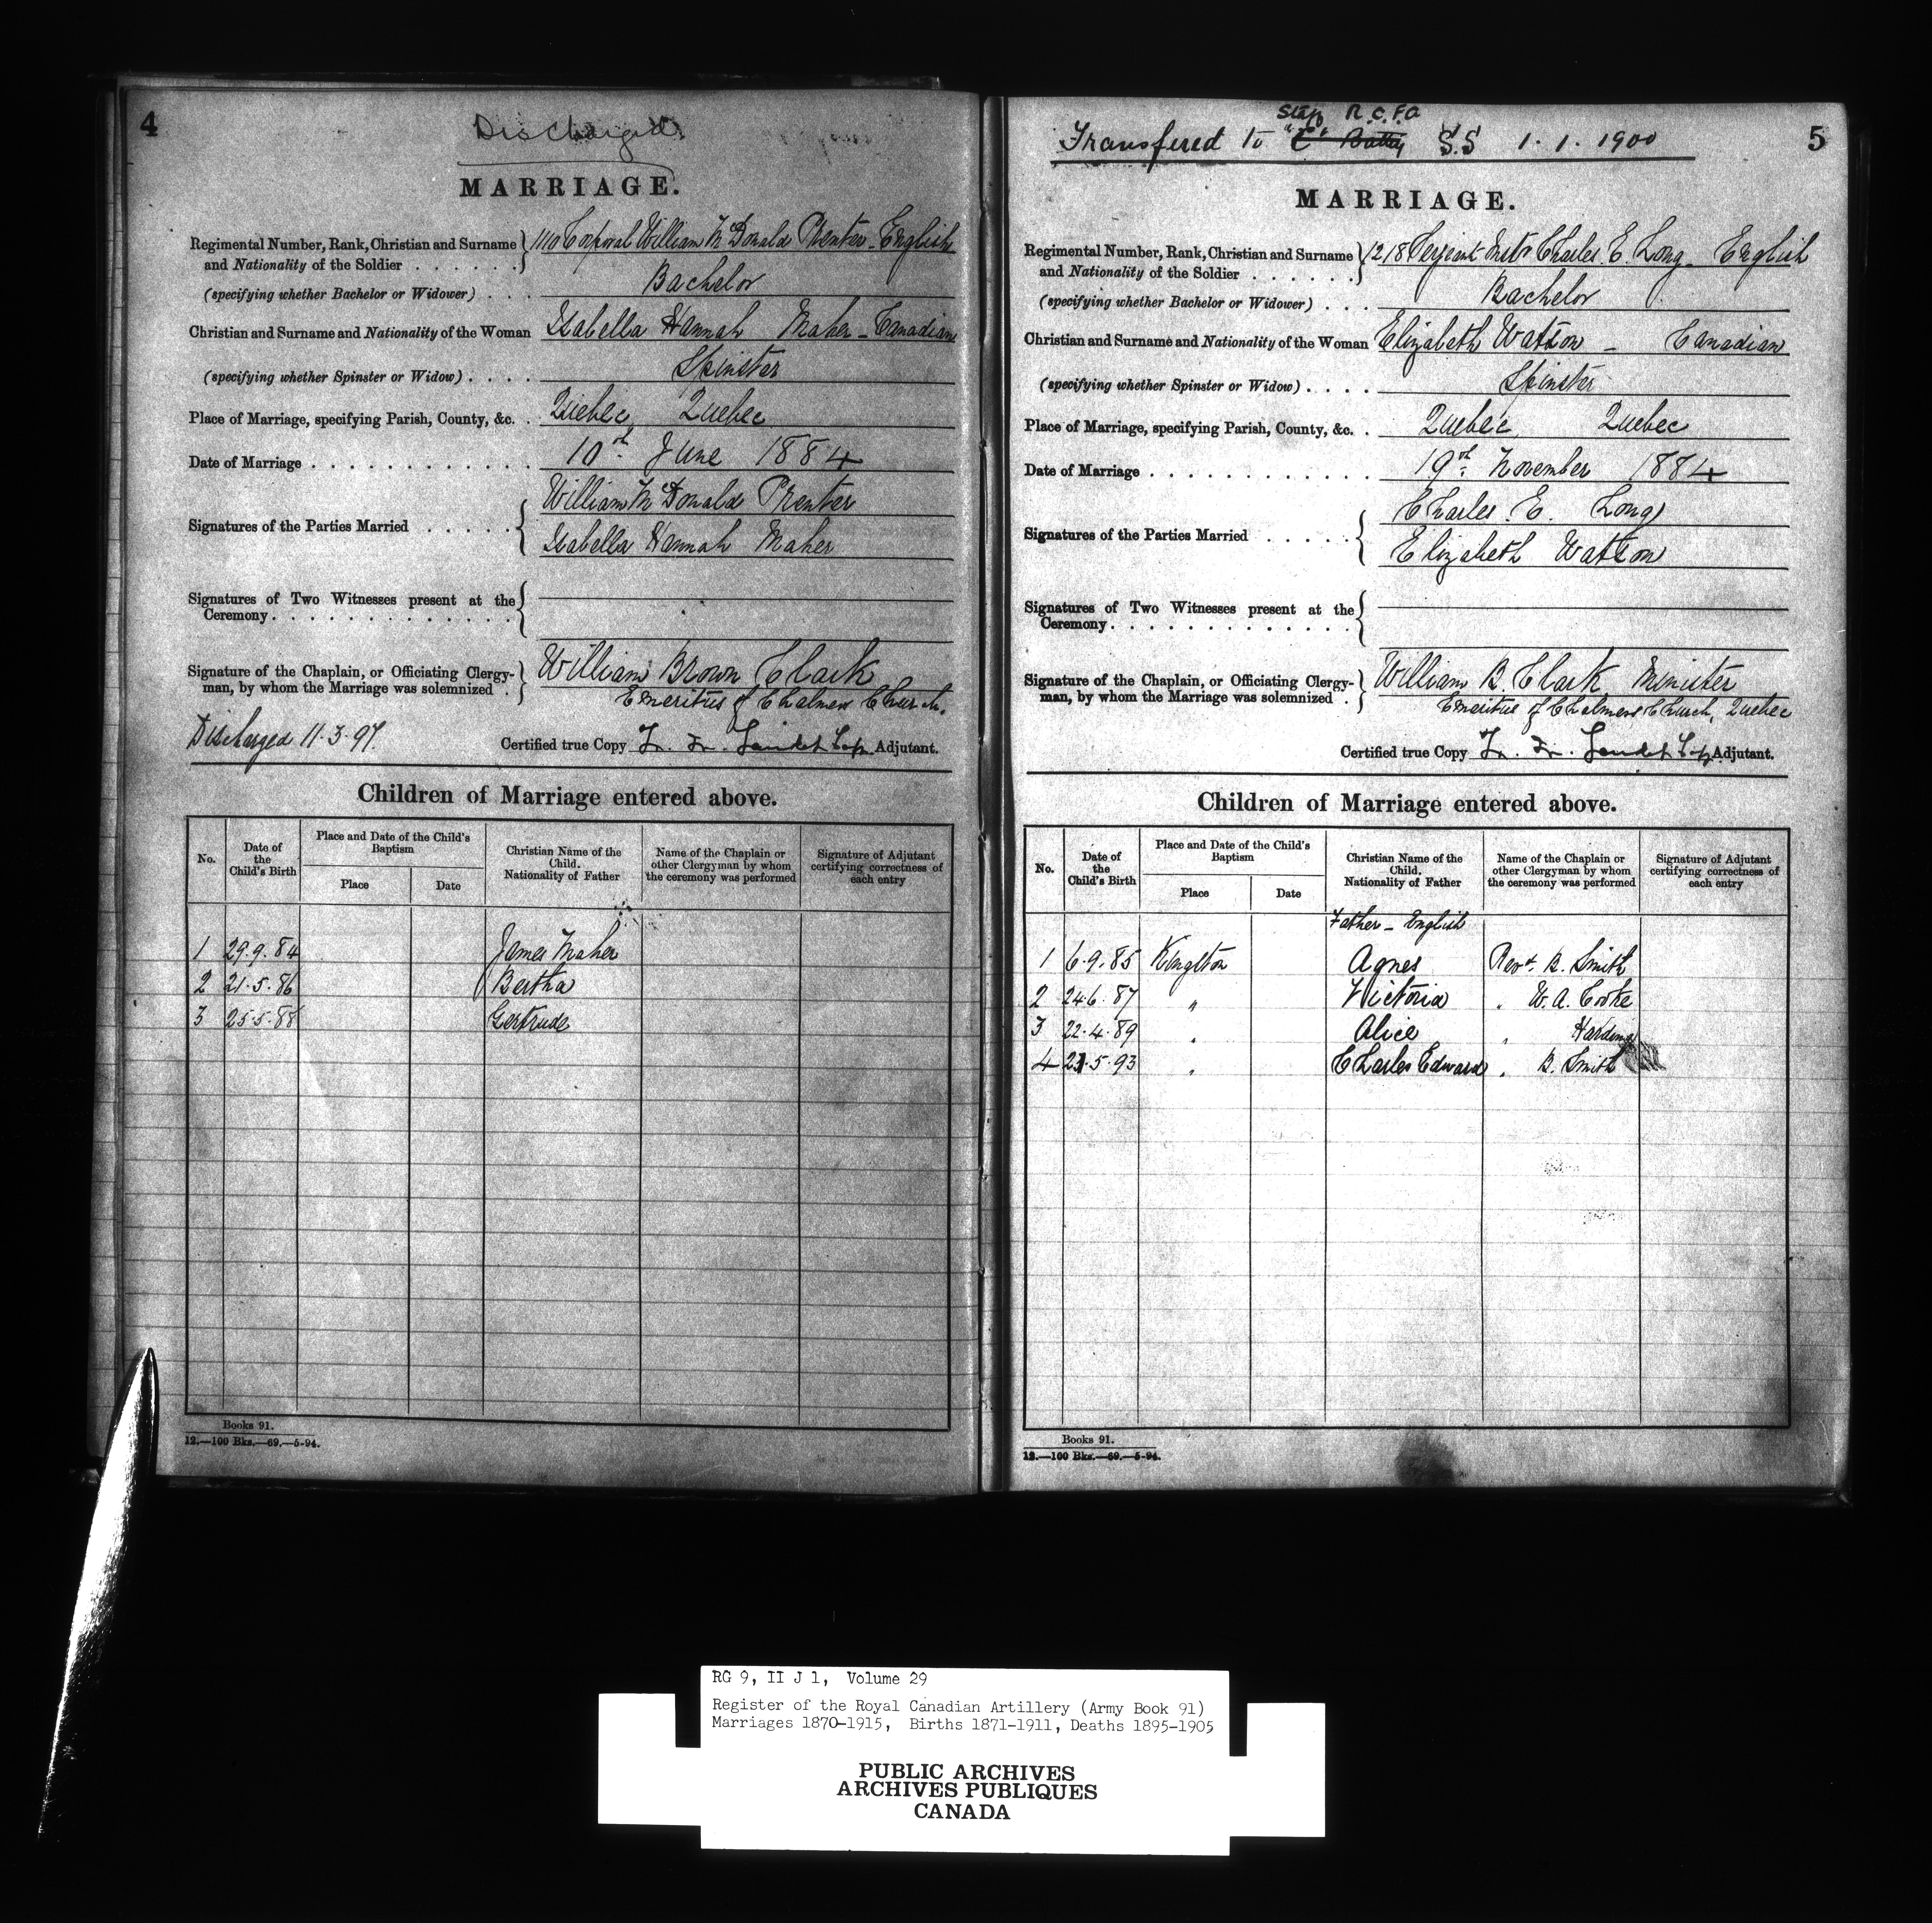 4
Discharged
MARRIAGE.
Regimental Number, Rank, Christian and Surname and Nationality of the Soldier . . . . . . 1110 Corporal William McDonald Prenter - English
(specifying whether Bachelor or Widower) . . . Bachelor
Christian and Surname and Nationality of the Woman Isabella Hannah Maher - Canadian
(specifying whether Spinster or Widow) . . . . Spinster
Place of Marriage, specifying Parish, County, &c. . Quebec, Quebec
Date of Marriage . . . . . . . . . . . . . 10th June 1884
Signatures of the Parties Married . . . . . William McDonald Prenter
Isabella Hannah Maher
Signatures of Two Witnesses present at the Ceremony. . . . . . . . . . . . . .
Signature of the Chaplain, or Officiating Clergy-
man, by whom the Marriage was solemnized . William Brown Clark
Emeritus of Chalmers Church.
Discharged 11.3.97. Certified true Copy Adjutant.
Children of Marriage entered above.
No. Date of the Child's Birth Place and Date of the Child's Baptism Place Date Christian Name of the Child. Nationality of Father Name of the Chaplain or other Clergyman by whom the ceremony was performed Signature of Adjutant certifying correctness of each entry
1 29.9.84 James Maher
2 21.5.86 Bertha
3 25.5.88 Gertrude
Books 91.
12.—100 Bks.—69.—5-94.
5
Staff R.C.F.A
Transfered to "C" Batty S.S 1.1.1900
MARRIAGE.
Regimental Number, Rank, Christian and Surname and Nationality of the Soldier . . . . . . 1218 Serjeant Instr Charles. E. Long - English
(specifying whether Bachelor or Widower) . . . Bachelor
Christian and Surname and Nationality of the Woman Elizabeth Watson - Canadian
(specifying whether Spinster or Widow) . . . . Spinster
Place of Marriage, specifying Parish, County, &c. . Quebec, Quebec
Date of Marriage . . . . . . . . . . . . 19th November 1884
Signatures of the Parties Married . . . . . Charles. E. Long
Elizabeth Watson
Signatures of Two Witnesses present at the Ceremony. . . . . . . . . . . . . .
Signature of the Chaplain, or Officiating Clergy-
man, by whom the Marriage was solemnized . William B. Clark, Minister
Emeritus of Chalmers Church, Quebec
Certified true Copy Adjutant.
Children of Marriage entered above.
No. Date of the Child's Birth Place and Date of the Child's Baptism Place Date Christian Name of the Child. Nationality of Father Name of the Chaplain or other Clergyman by whom the ceremony was performed Signature of Adjutant certifying correctness of each entry
Father - English
1 6.9.85 Kingston Agnes Revd. B. Smith
2 24.6.87 " Victoria " W. A. Cooke
3 22.4.89 " Alice " Harding
4 21.5.93 " Charles Edward " B. Smith
Books 91.
12.—100 Bks.—69.—5-94.
RG 9, II J 1, Volume 29
Register of the Royal Canadian Artillery (Army Book 91)
Marriages 1870-1915, Births 1871-1911, Deaths 1895-1905
PUBLIC ARCHIVES
ARCHIVES PUBLIQUES
CANADA